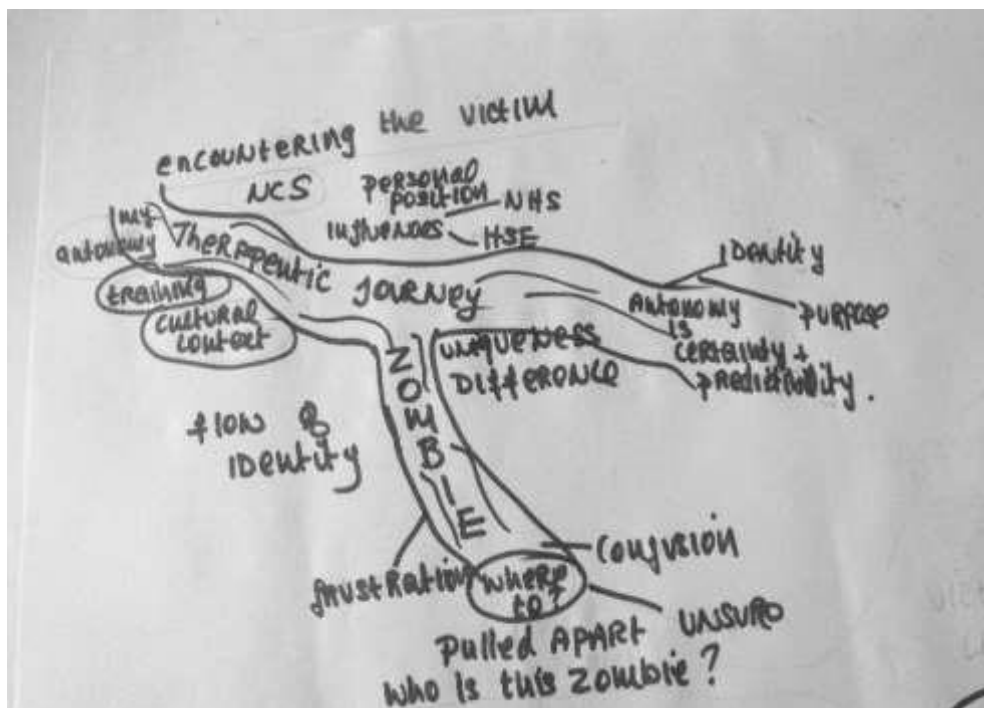 encountering the victim
NCS
personal
position
NHS
Influences
HSE
my
autonomy
Therapeutic
Journey
training
cultural
context
Identity
Purpose
Autonomy
is
certainty +
predictability.
ZOMBIE
uniqueness
Difference
flow of
identity
frustration
where
to?
confusion
Pulled APART UNSURE
Who is this zombie?